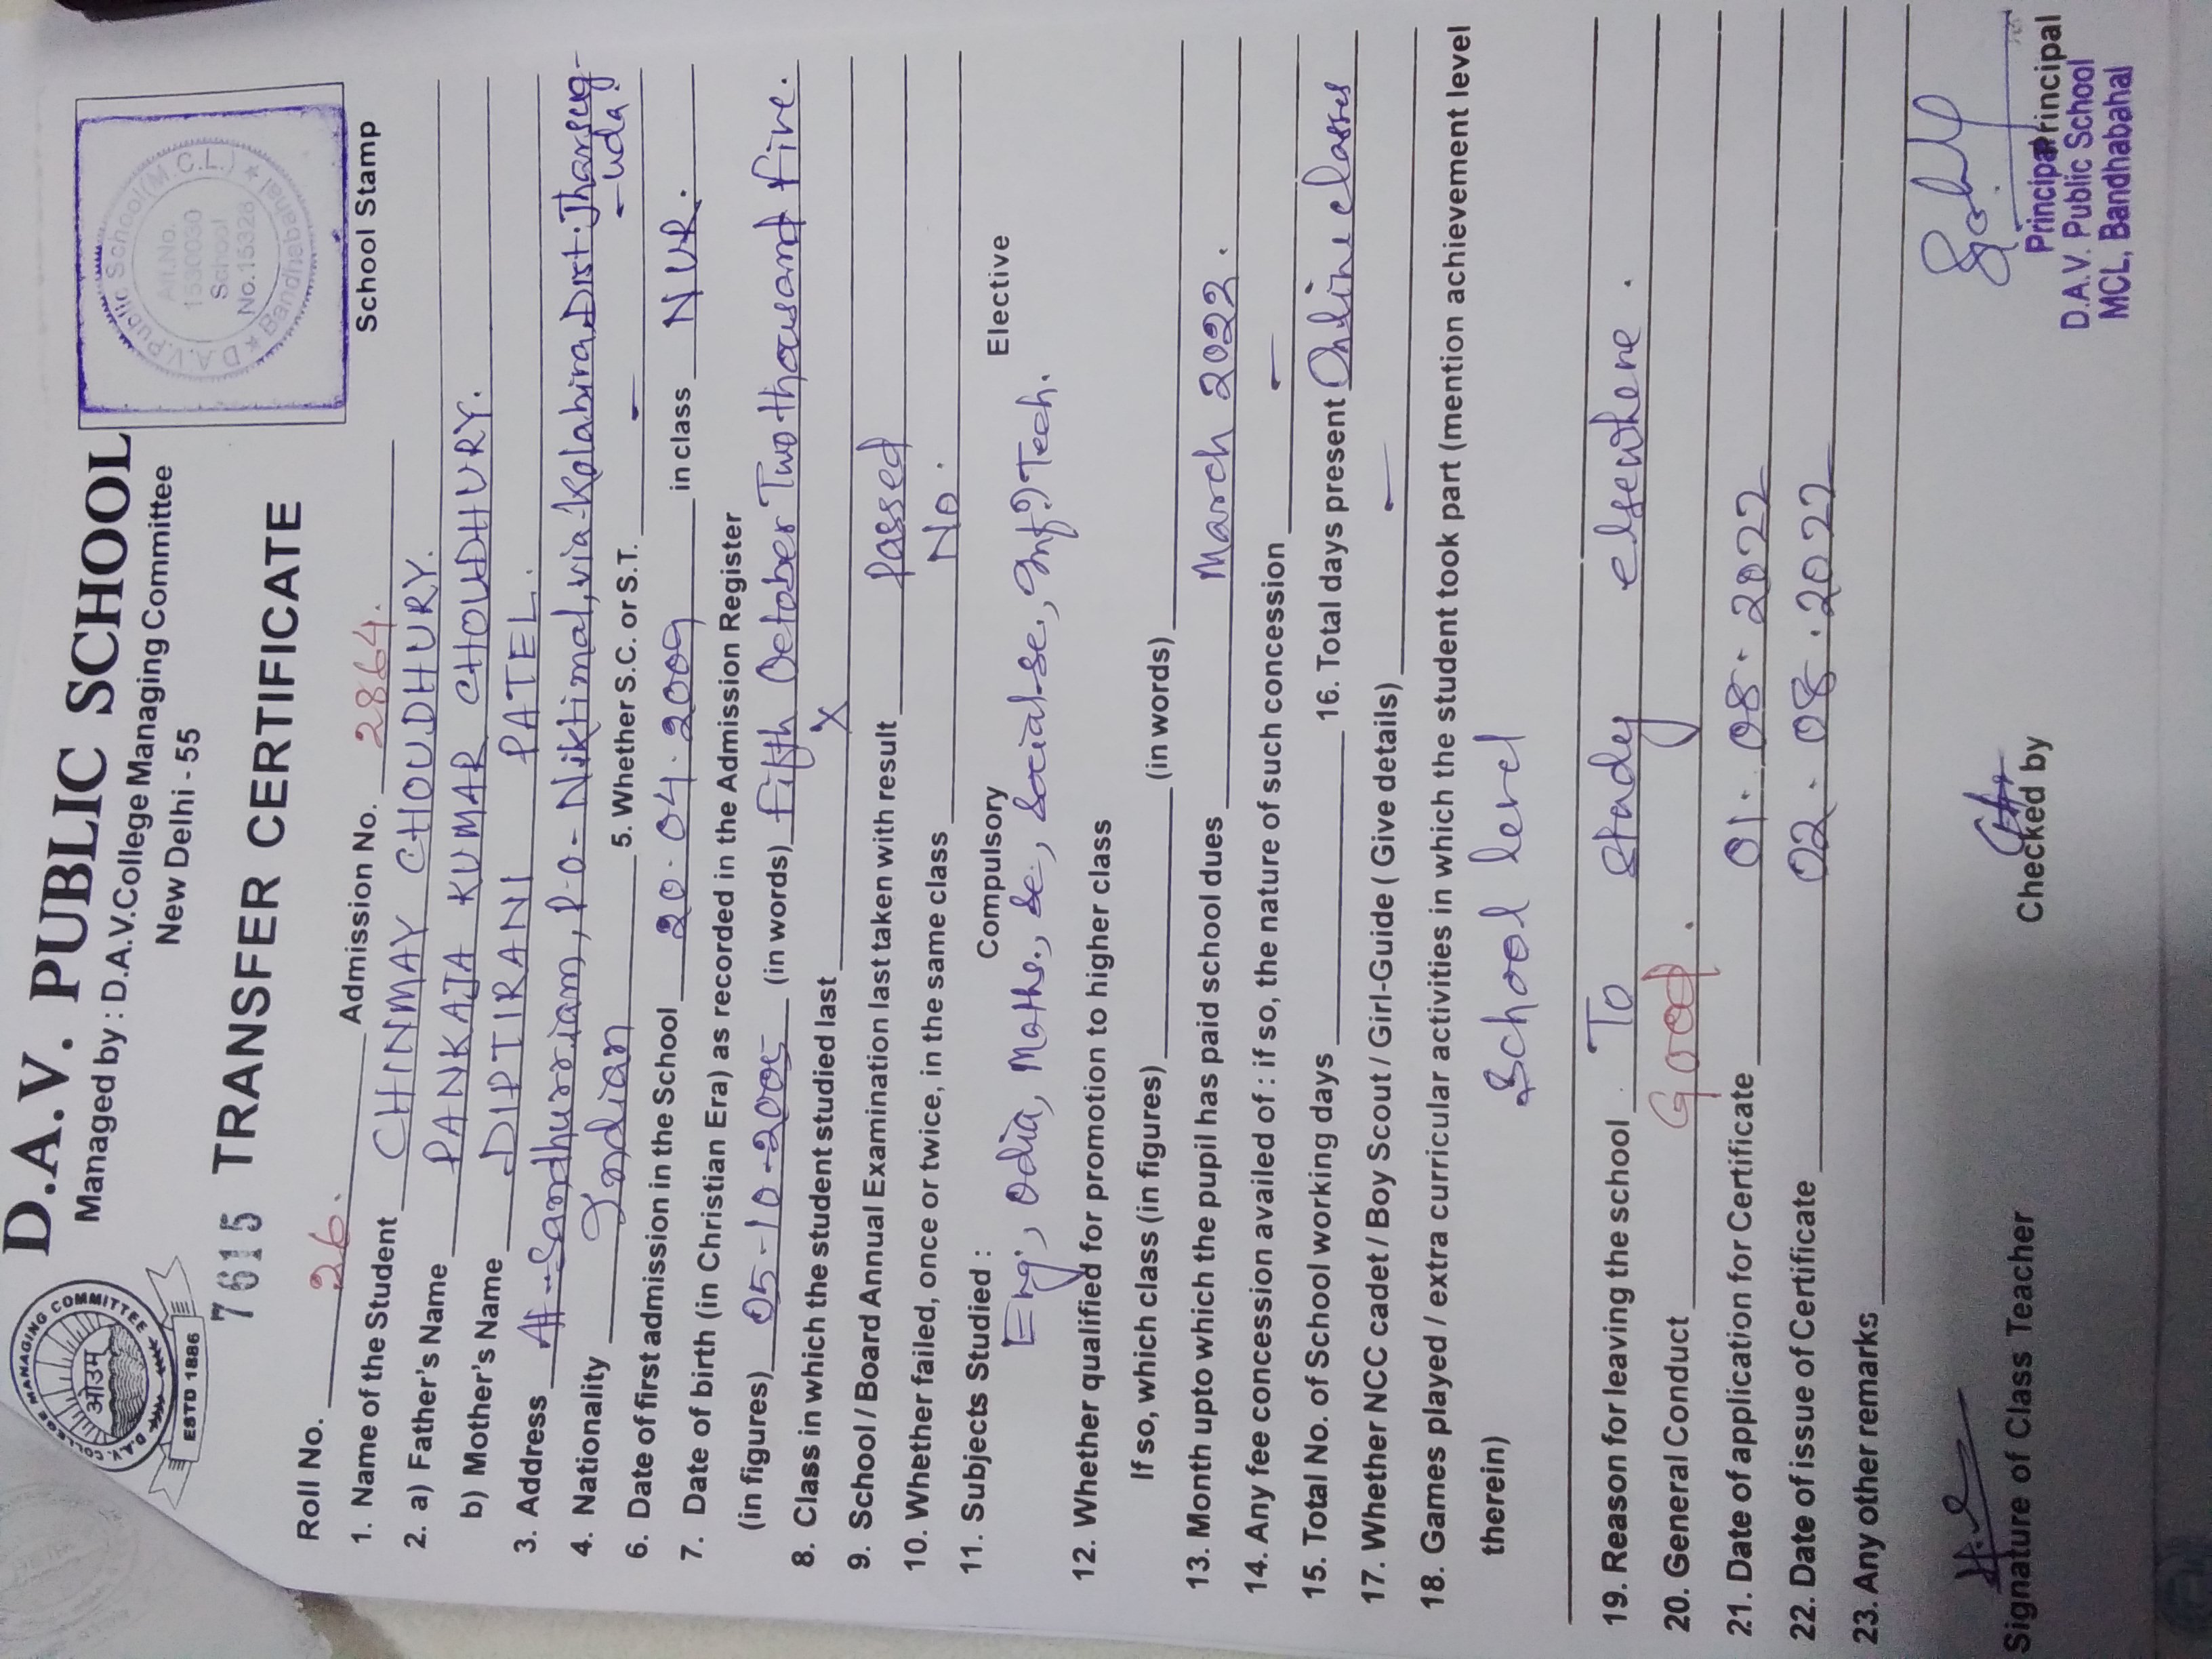 D.A.V. PUBLIC SCHOOL
Managed by : D.A.V.College Managing Committee
New Delhi - 55
D.A.V. COLLEGE MANAGING COMMITTEE
ओउम्
ESTD 1886
7615 TRANSFER CERTIFICATE
D.A.V. Public School (M.C.L.) ★ Bandhabahal ★
Aff.No.
1530030
School
No.15322
School Stamp
Roll No. 26. Admission No. 2864.
1. Name of the Student CHINMAY CHOUDHURY.
2. a) Father's Name PANKAJA KUMAR CHOUDHURY.
b) Mother's Name DIPTIRANI PATEL.
3. Address At-Sandhurriam, P.O-Niktimal, via-Kolabira, Dist-Jharsug-
-uda
4. Nationality Indian 5. Whether S.C. or S.T. -
6. Date of first admission in the School 20.04.2009 in class NUR.
7. Date of birth (in Christian Era) as recorded in the Admission Register
(in figures) 05-10-2005 (in words) Fifth October Two thousand Five.
8. Class in which the student studied last X
9. School / Board Annual Examination last taken with result passed
10. Whether failed, once or twice, in the same class No.
11. Subjects Studied : Compulsory Elective
Eng., Odia, Maths., Sc., Social-Sc., Inf. Tech.
12. Whether qualified for promotion to higher class
If so, which class (in figures) (in words)
13. Month upto which the pupil has paid school dues March 2022.
14. Any fee concession availed of : if so, the nature of such concession -
15. Total No. of School working days 16. Total days present Online classes
17. Whether NCC cadet / Boy Scout / Girl-Guide ( Give details) -
18. Games played / extra curricular activities in which the student took part (mention achievement level
therein) School level
19. Reason for leaving the school To study elsewhere.
20. General Conduct Good.
21. Date of application for Certificate 01.08.2022
22. Date of issue of Certificate 02.08.2022
23. Any other remarks
Signature of Class Teacher Checked by Principal
Principal
D.A.V. Public School
MCL, Bandhabahal